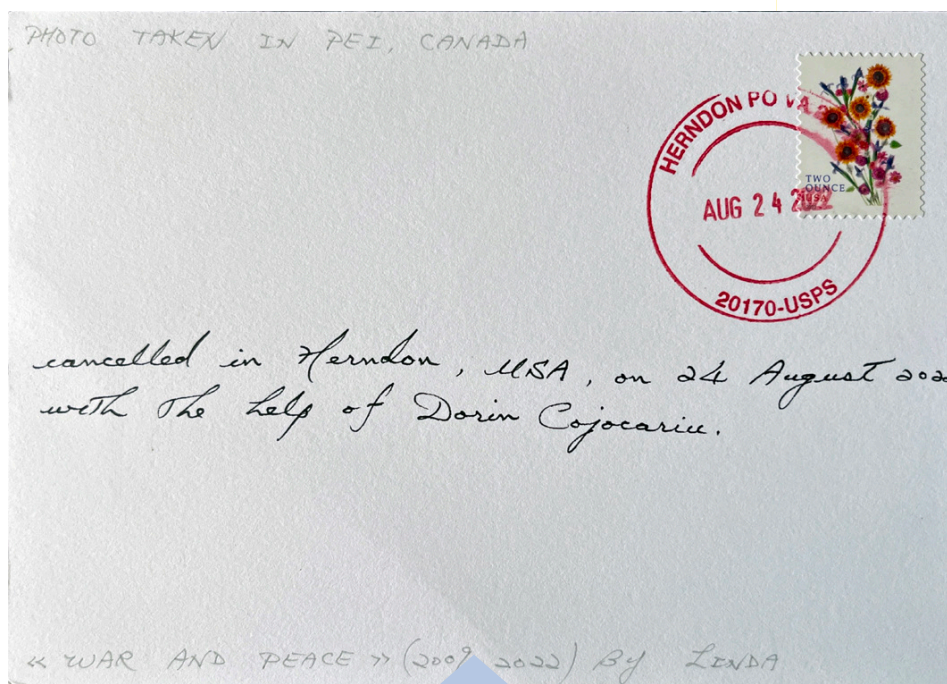 PHOTO TAKEN IN PEI, CANADA
HERNDON PO VA
AUG 24 2022
20170-USPS
TWO
OUNCE
USA
cancelled in Herndon, USA, on 24 August
with the help of Dorin Cojocariu.
« WAR AND PEACE » (2009 2022) BY LINDA